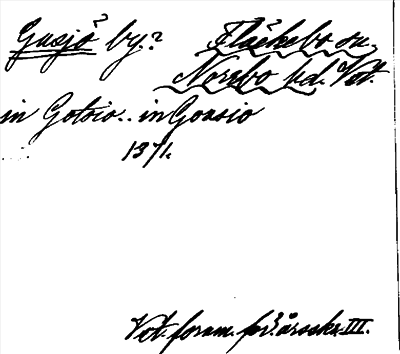 Gusjö by.? Fläckebo sn.
Norrbo hd. Vstt.
in Gotsio.. in Goasio
1371.
Vet. foran. för. årsskr. III.